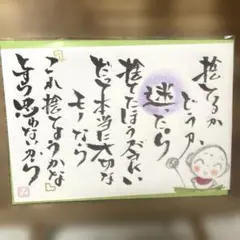 捨てるか
どうか、
迷ったら
捨てたほうがいい
だって本当に大切な
モノなら
これ捨てようかな
とすら思わないから